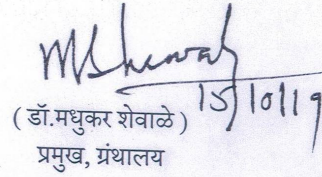 15/10/19
( डॉ.मधुकर शेवाळे )
प्रमुख, ग्रंथालय